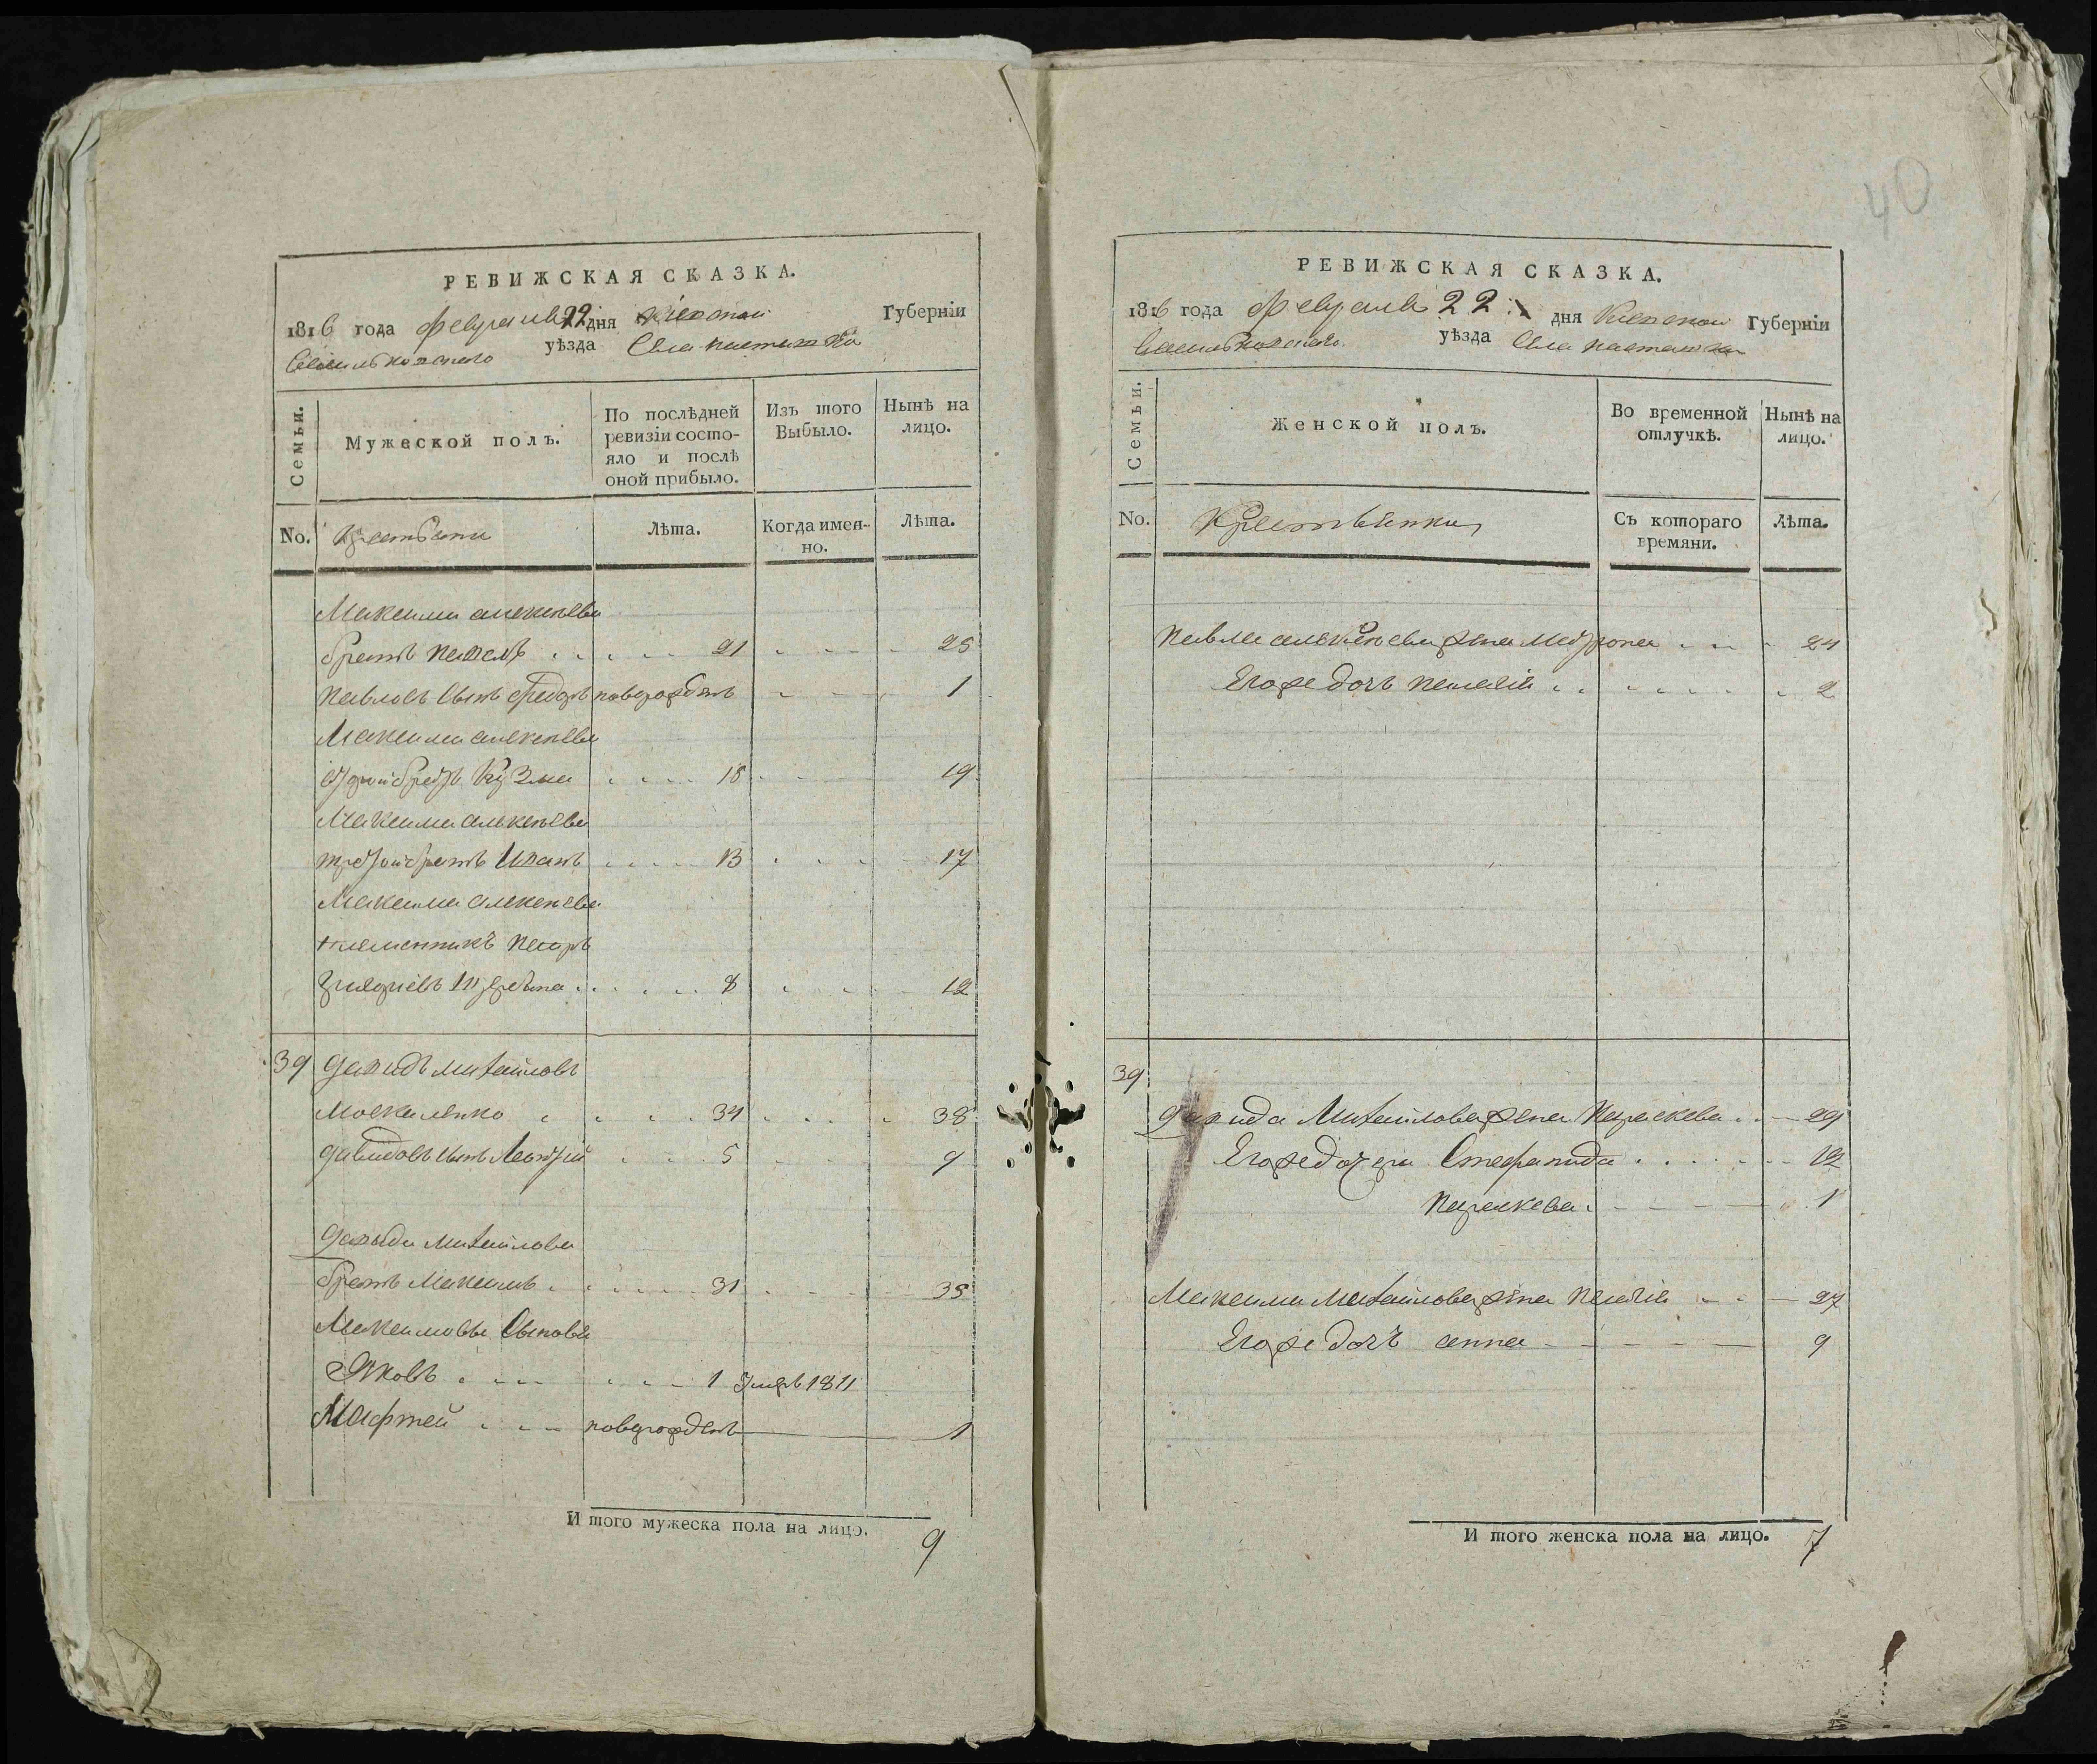 РЕВИЖСКАЯ СКАЗКА.
1816 года февраля 22 дня Киевской Губернїи
Васильковского уѣзда Села пасташка
Семьи.
Мужеской полъ.
По послѣдней ревизїи состояло и послѣ оной прибыло.
Изъ того Выбыло.
Нынѣ на лицо.
No.
Крестьяни
Лѣта.
Когда именно.
Лѣта.
Максима алексѣева
братъ павелъ 21 25
павловъ сынъ федоръ новорожденъ 1
Максима алексѣева
другой братъ Кузма 15 19
Максима алексѣева
третой братъ Иванъ 13 17
Максима алексѣева
племенникъ петръ
8 12
39 давидъ михайловъ
Москаленко 34 38
давидовъ сынъ Леонтій 5 9
давыда михайлова
братъ Максимъ 31 35
Максимовы Сыновья
Яковъ 1 умръ 1811
Мафтей новорожденъ 1
И того мужеска пола на лицо. 9
40
РЕВИЖСКАЯ СКАЗКА.
1816 года февраля 22 дня Киевской Губернїи
Васильковского уѣзда Села пасташка
Семьи.
Женской полъ.
Во временной отлучкѣ.
Нынѣ на лицо.
No.
Крестьянки
Съ котораго времяни.
Лѣта.
павла алексѣева жена Мотрона 24
Егоже дочь пелагія 2
39
давида Михайлова жена Параскева 29
Егоже дочери Стефанида 12
параскева 1
Максима Михайлова жена пелагія 27
Егоже дочь анна 9
И того женска пола на лицо. 7